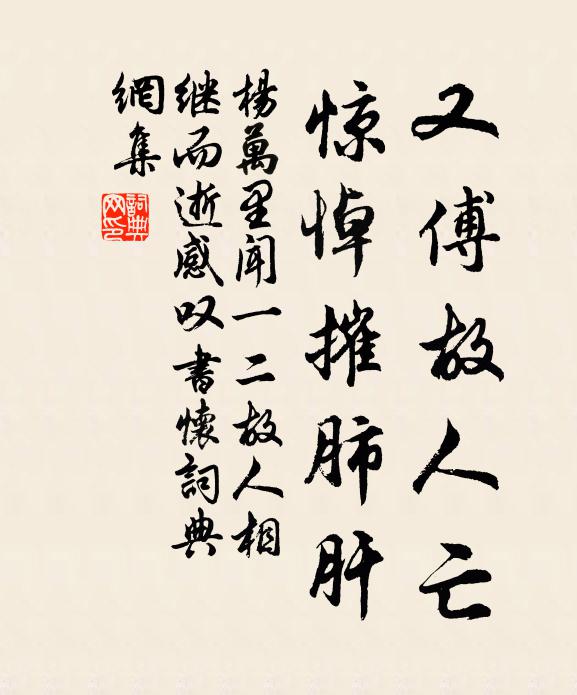 又傅故人亡
惊悼摧肺肝
楊萬里闻一二故人相
继而逝感叹書懷詞典
網集
詞典网印